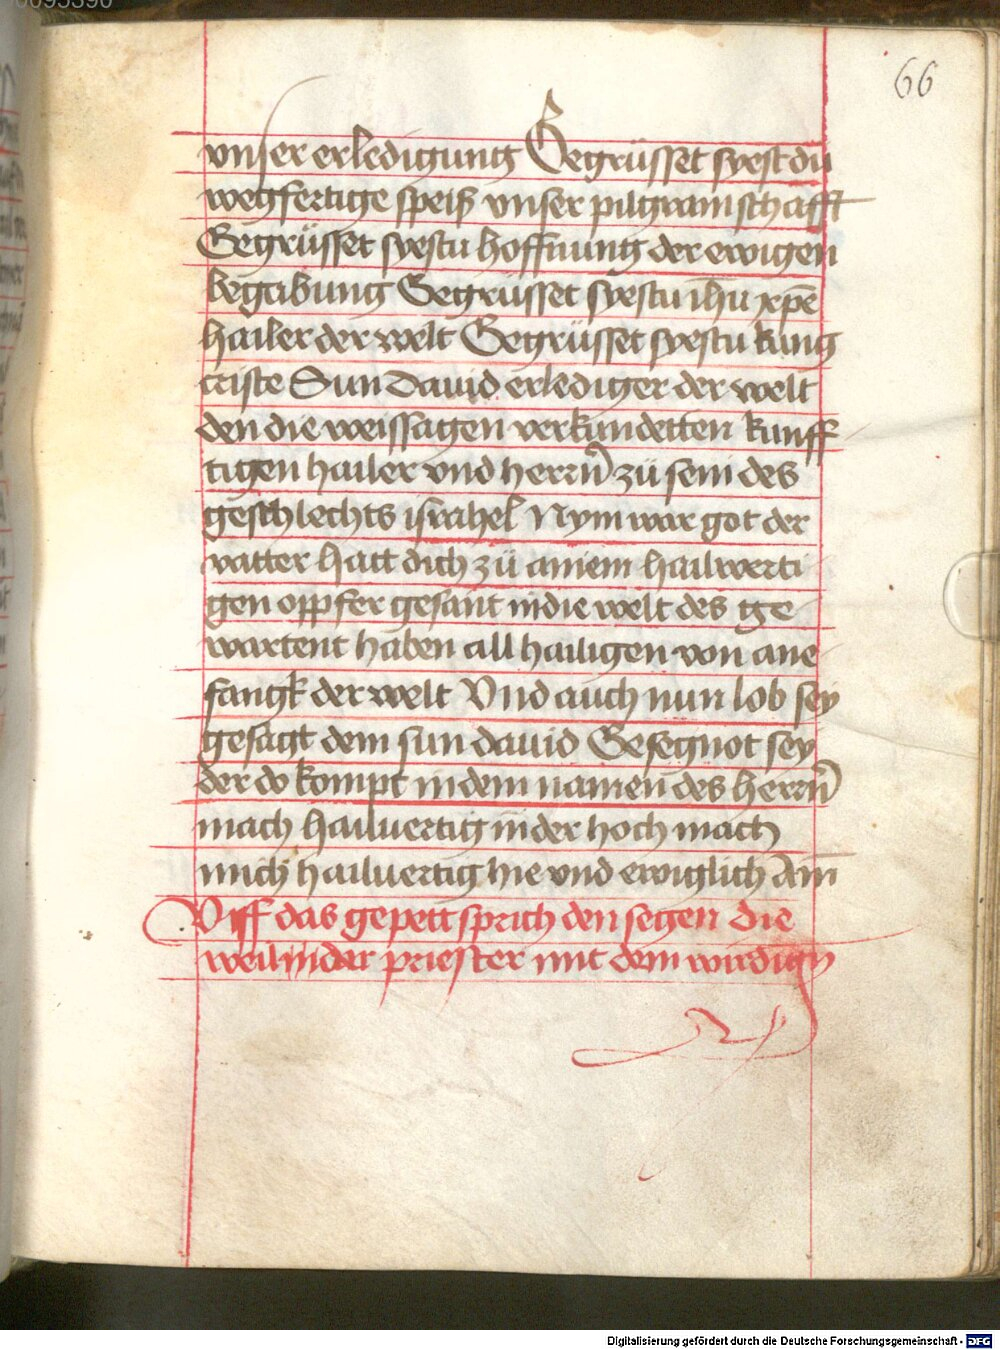 66
vnser erledigung Gegrüsset syest du
wegfertige speiß vnser pilgramschafft
Gegrüsset syestu hoffnung der ewigen
begabung Gegrüsset syestu ihu xpe
hailer der welt Gegrüsset syestu kung
criste Sun Dauid erlediger der welt
den die weissagen verkundetten kunff
tigen hailer vnd herrn̄ zü sein des
geschlechts israhel Nym war got der
vatter hatt dich zü ainem hailwerti
gen opffer gesant in die welt des ge
wartent haben all hailigen von ane
fangk der welt Vnd auch nun lob sey
gesagt dem sun dauid Gesegnot sey
der do kompt in dem namen des herrn̄
mach hailuertig in der hoch mach
mich hailuertig hie vnd ewiglich Am̄
Vff das gepett sprich den segen die
weil in der priester mit dem wirdign̄
Digitalisierung gefördert durch die Deutsche Forschungsgemeinschaft - DFG